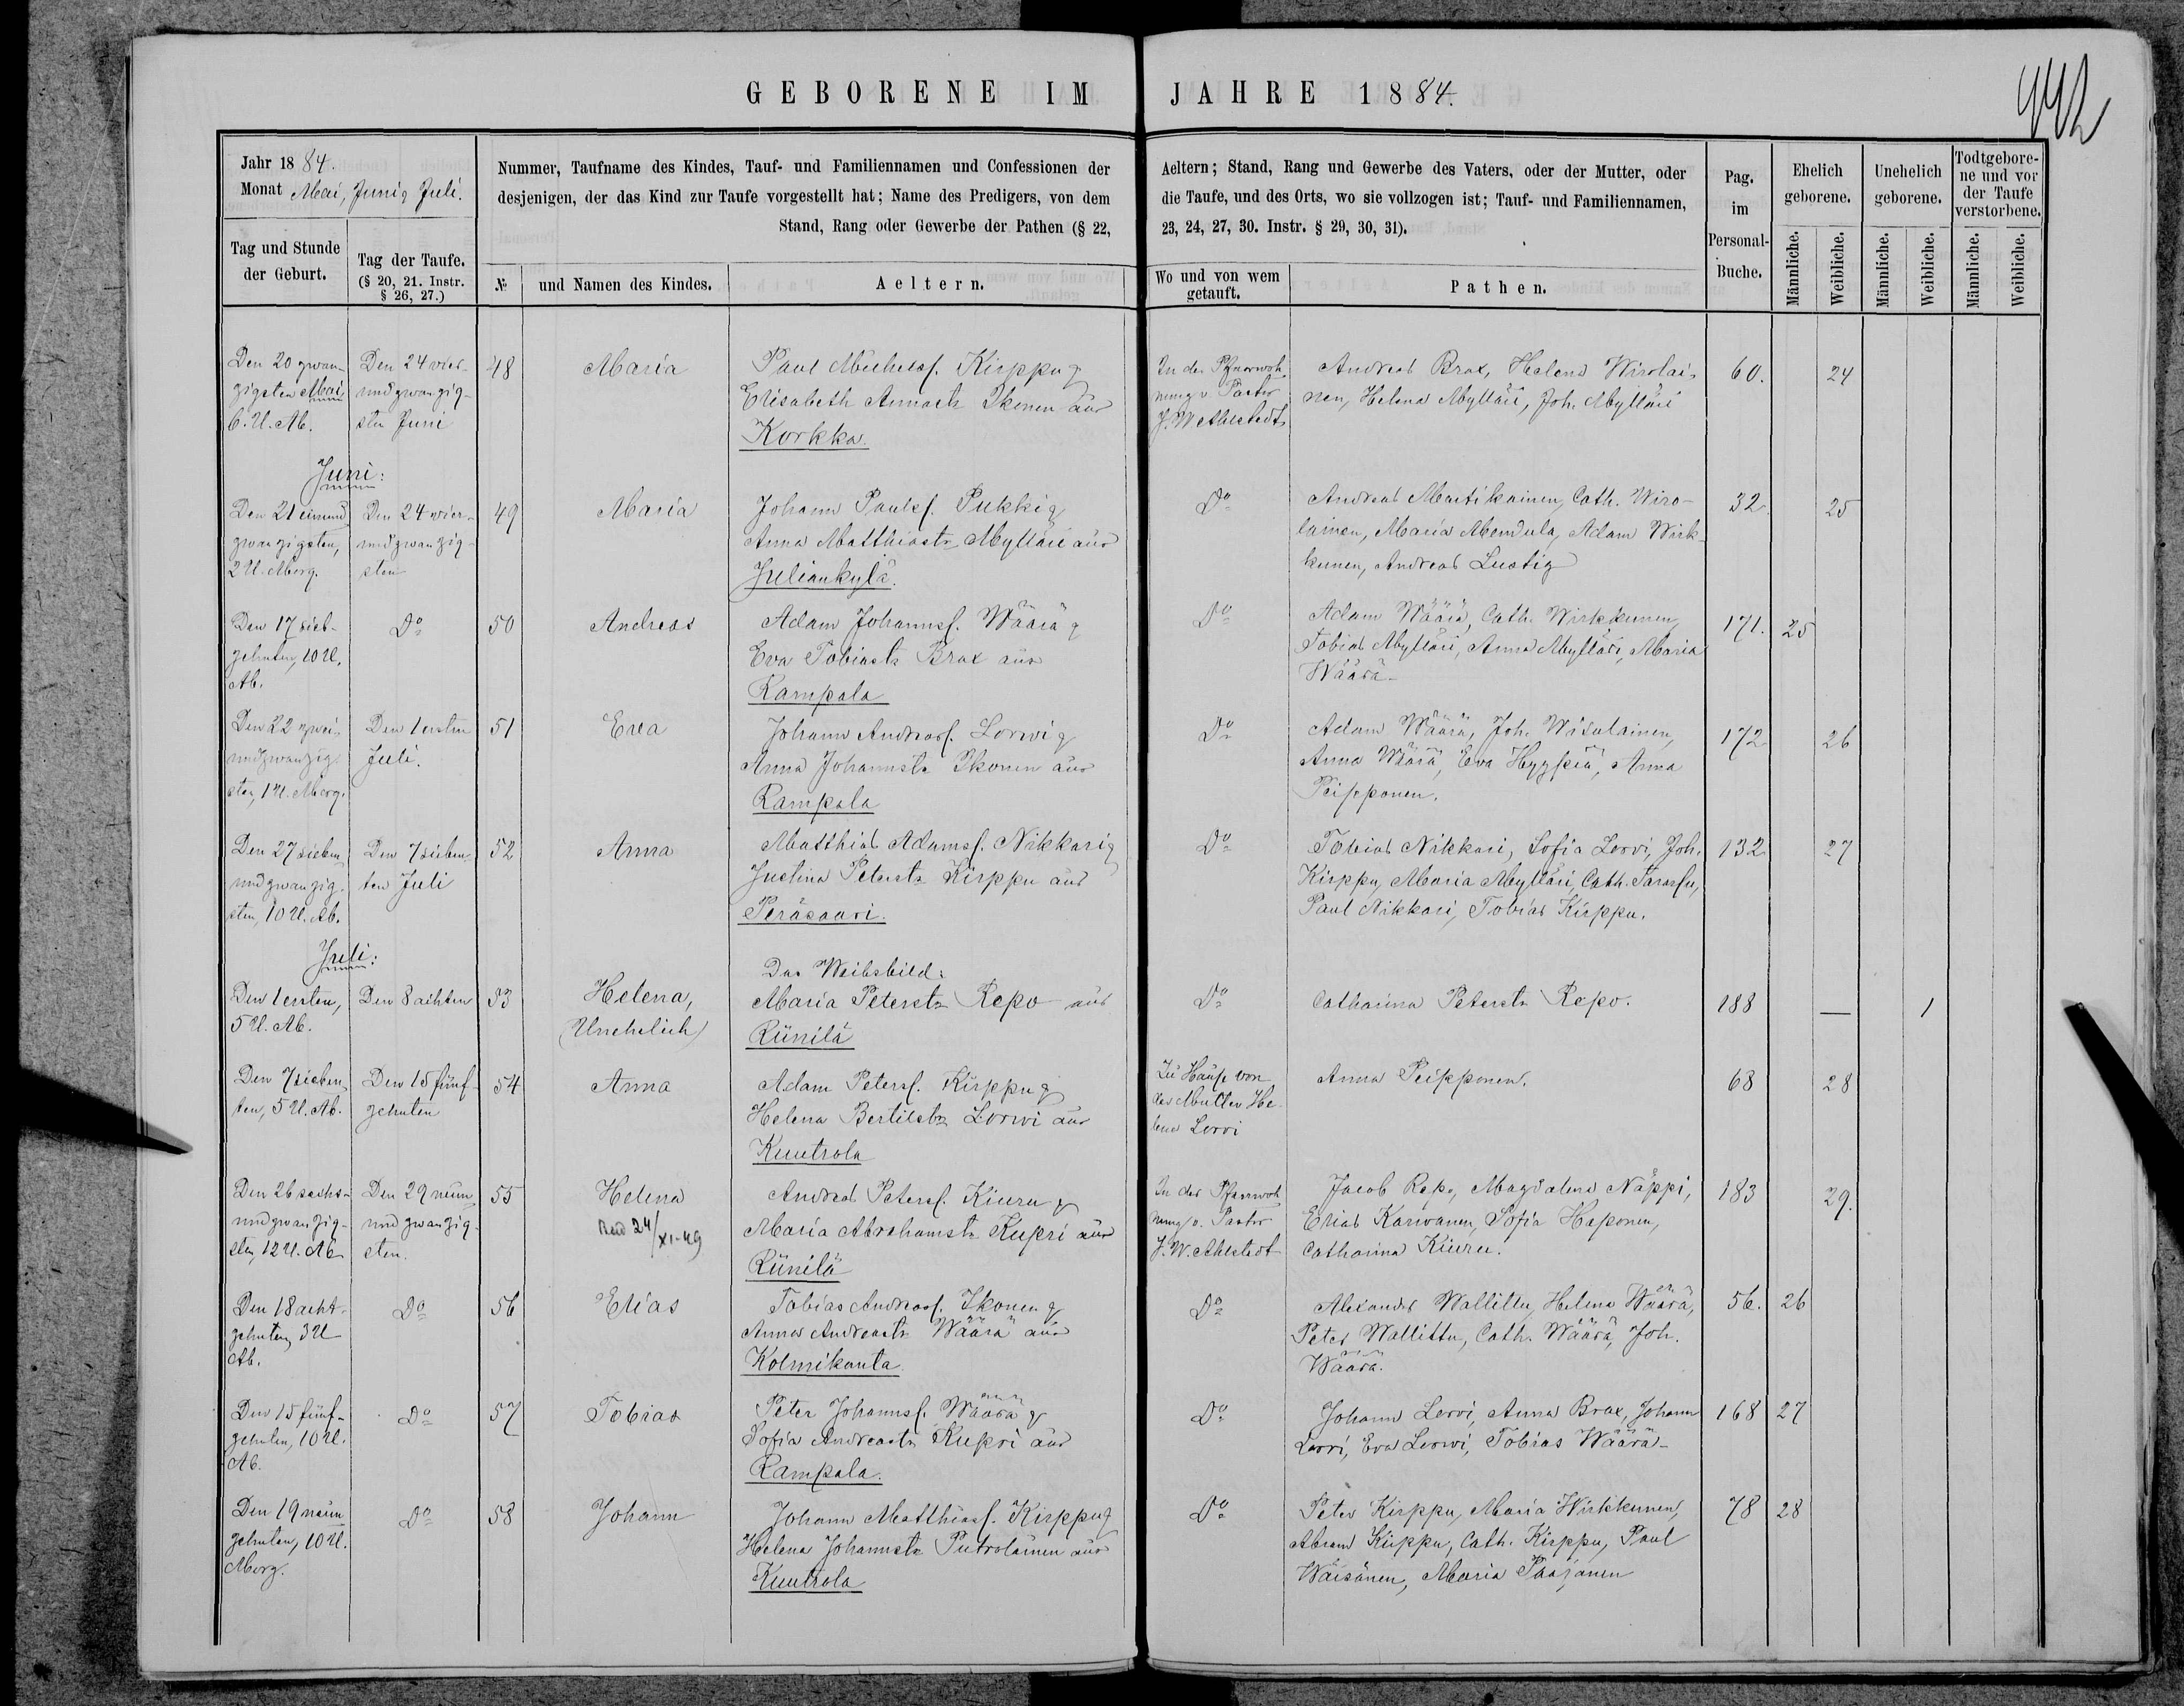 GEBORENE IM JAHRE 1884.
442
Jahr 1884.
Monat Mai, Juni & Juli.
Tag und Stunde
der Geburt.
Tag der Taufe.
(§ 20, 21. Instr.
§ 26, 27.)
Nummer, Taufname des Kindes, Tauf- und Familiennamen und Confessionen der
desjenigen, der das Kind zur Taufe vorgestellt hat; Name des Predigers, von dem
Stand, Rang oder Gewerbe der Pathen (§ 22,
№
und Namen des Kindes.
Aeltern.
Aeltern; Stand, Rang und Gewerbe des Vaters, oder der Mutter, oder
die Taufe, und des Orts, wo sie vollzogen ist; Tauf- und Familiennamen,
23, 24, 27, 30. Instr. § 29, 30, 31).
Wo und von wem
getauft.
Pathen.
Pag.
im
Personal-
Buche.
Ehelich
geborene.
Unehelich
geborene.
Todtgebore-
ne und vor
der Taufe
verstorbene.
Männliche.
Weibliche.
Männliche.
Weibliche.
Männliche.
Weibliche.
Den 20 zwan-
zigsten Mai
6. U. Ab.
Den 24 vier-
undzwanzig-
sten Juni
48
Maria
Paul Michelsf. Kirppu &
Elisabeth Ikonen aus
Korkka.
In der Pfarrwoh-
nung v Pastor
J. W Ahlstedt
Andreas Brax, Helena Wirolai-
nen, Helena Mylläri, Joh. Mylläri
60.
24
Juni:
Den 21 einund
zwanzigsten,
2 U. Morg.
Den 24 vier-
undzwanzig-
sten
49
Maria
Johann Paulsf. Pukki &
Anna Matthiastr Mylläri aus
Juliankylä.
Do
Andreas Martikainen, Cath. Wiro-
lainen, Maria Mendula, Adam Wirk-
kunen, Andreas Lustig
32
25
Den 17 sieb-
zehnten, 10 U.
Ab.
Do
50
Andreas
Adam Johannsf. Wäärä &
Eva Tobiastr Brax aus
Rampala
Do
Adam Wäärä, Cath. Wirkkunen,
Tobias Mylläri, Anna Mylläri, Maria
Wäärä
171.
25
Den 22 zwei-
undzwanzig-
sten, 1 U. Morg.
Den 1 ersten
Juli.
51
Eva
Johann Andreasf. Lorwi &
Anna Johannstr Ikonen aus
Rampala
Do
Adam Wäärä, Joh.
Anna Wäärä, Eva Hyypiä, Anna
Peipponen.
172
26
Den 27 sieben
undzwanzig-
sten, 10 U. Ab.
Den 7 sieben-
ten Juli
52
Anna
Matthias Adamsf. Nikkari &
Justina Peterstr Kirppu aus
Peräsaari.
Do
Tobias Nikkari, Sofia Lorvi, Joh.
Kirppu, Maria Mylläri, Cath.
Paul Nikkari, Tobias Kirppu.
132
27
Juli:
Den 1 ersten,
5 U. Ab.
Den 8 achten
53
Helena,
(Unehelich)
Das Weibsbild:
Maria Peterstr Repo aus
Rünilä
Do
Catharina Peterstr Repo.
188
—
1
Den 7 sieben-
ten, 5 U. Ab.
Den 15 fünf-
zehnten
54
Anna
Adam Petersf. Kirppu &
Helena Bertilstr Lorwi aus
Kuutrola
Zu Hause von
der Mutter He-
lena Lorvi
Anna Peipponen.
68
28
Den 26 sechs-
undzwanzig-
sten, 12 U. Ab
Den 29 neun
undzwanzig-
sten.
55
Helena
24/XI-49
Andreas Petersf. Kiuru &
Maria Abrahamstr Kupri aus
Rünilä
In der Pfarrwoh-
nung v. Pastor
J. W. Ahlstedt
Jacob Repo, Magdalena Näppi,
Elias Karwanen, Sofia Haponen,
Catharina Kiuru.
183
29.
Den 18 acht-
zehnten, 3 U
Ab.
Do
56
Elias
Tobias Andreasf. Ikonen &
Anna Andreastr Wäärä aus
Kolmikanta.
Do
Alexander Wallittu, Helena Wäärä,
Peter Wallittu, Cath. Wäärä, Joh.
Wäärä.
56.
26
Den 15 fünf-
zehnten, 10 U.
Ab.
Do
57
Tobias
Peter Johannsf. Wäärä &
Sofia Andreastr Kupri aus
Rampala.
Do
Johann Lorvi, Anna Brax, Johann
Lorvi, Eva Lorwi, Tobias Wäärä
168
27
Den 19 neun
zehnten, 10 U.
Morg.
Do
58
Johann
Johann Matthiasf. Kirppu &
Helena Johannstr Putrolainen aus
Kuutrola
Do
Peter Kirppu, Maria Wirkkunen,
Abram Kirppu, Cath. Kirppu, Paul
Wäisänen, Maria Pääjänen
78
28